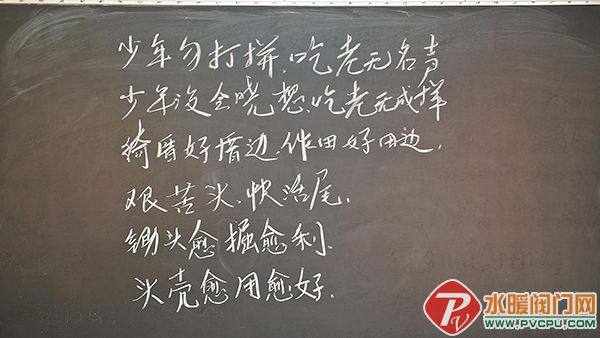 少年勿打拼,吃老无名声
少年没会晓想,吃老无成样
好厝边,作田好田边,
艰苦头,快活尾,
锄头愈掘愈利,
头壳愈用愈好.
水暖阀门网
WWW.PVCPU.COM